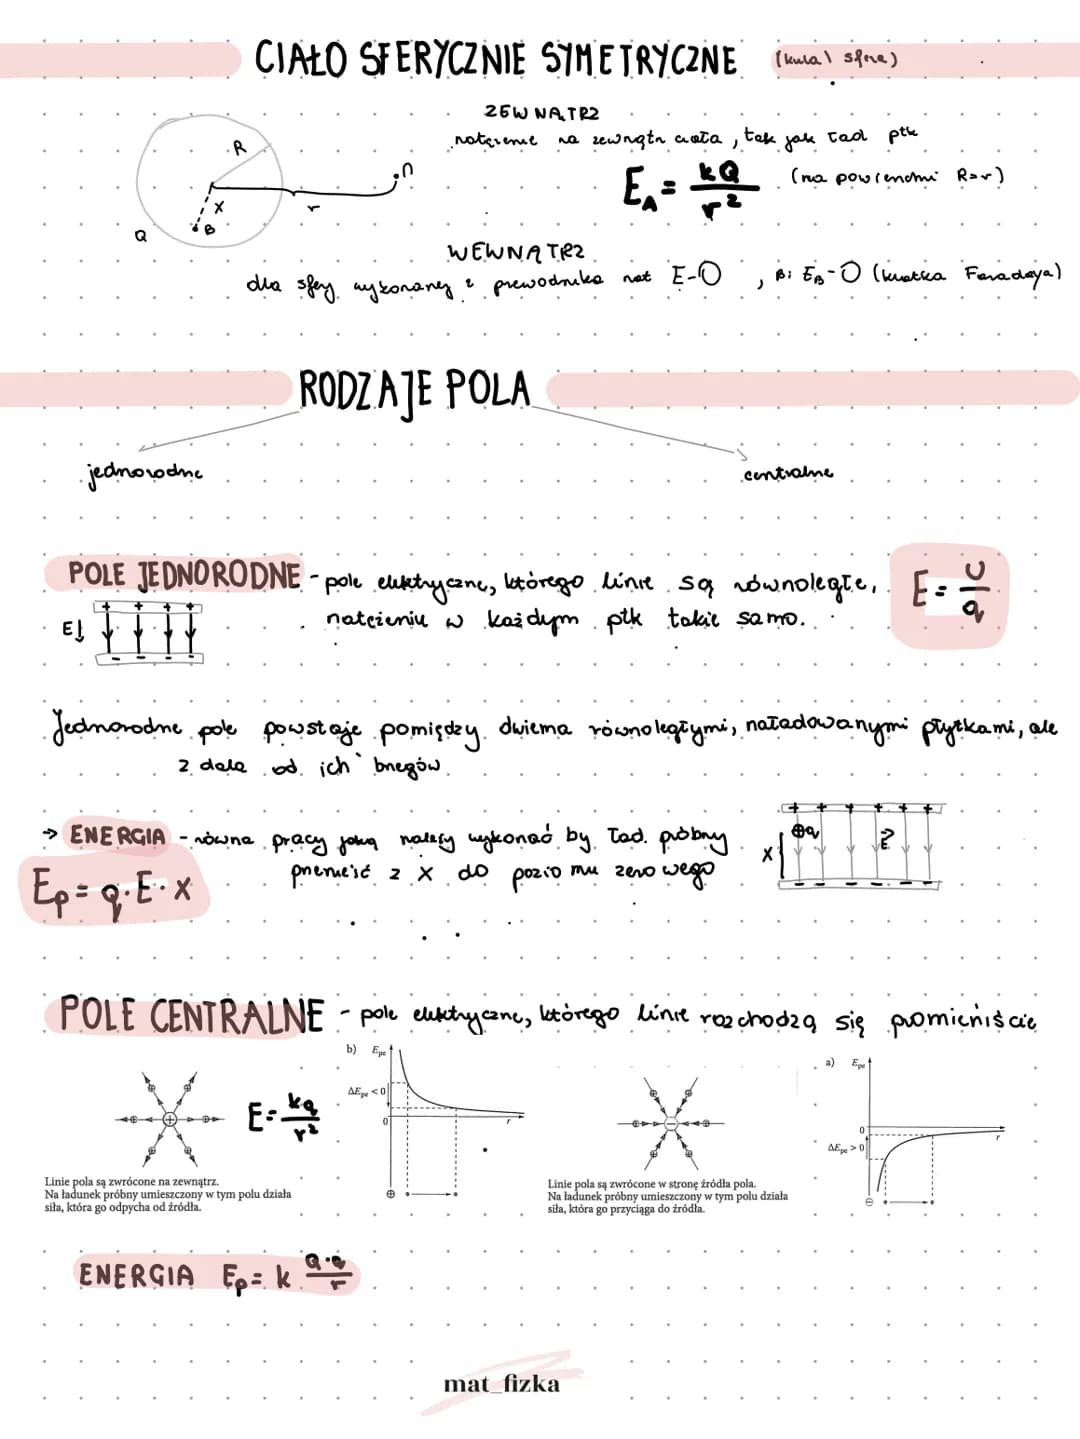 CIAŁO SFERYCZNIE SYMETRYCZNE (kula \ sfera)
ZEWNĄTRZ
natężenie na zewnątrz ciała, tak jak ład ptk
E_A = kQ/r² (na powierzchni R=r)
R
r
X
B
Q
WEWNĄTRZ
dla sfery wykonanej z przewodnika nat E-0, B: E_B-0 (klatka Faradaya)
RODZAJE POLA
jednorodne
centralne
POLE JEDNORODNE - pole elektryczne, którego linie są równoległe,
natężeniu w każdym ptk takie samo.
E = U/q
E↓
+ + + +
- - - -
Jednorodne pole powstaje pomiędzy dwiema równoległymi, naładowanymi płytkami, ale
z dala od ich brzegów.
→ ENERGIA - równa pracy jaką należy wykonać by ład. próbny
przenieść z X do poziomu zerowego
Ep = q·E·x
+ + + + + +
⊕q
X
- - - - - -
POLE CENTRALNE - pole elektryczne, którego linie rozchodzą się promieniście
E = kq/r²
b) Epe
ΔEpe < 0
0
r
⊕
Linie pola są zwrócone na zewnątrz.
Na ładunek próbny umieszczony w tym polu działa
siła, która go odpycha od źródła.
a) Epe
0
r
ΔEpe > 0
⊖
Linie pola są zwrócone w stronę źródła pola.
Na ładunek próbny umieszczony w tym polu działa
siła, która go przyciąga do źródła.
ENERGIA Ep = k Q·q/r
mat_fizka